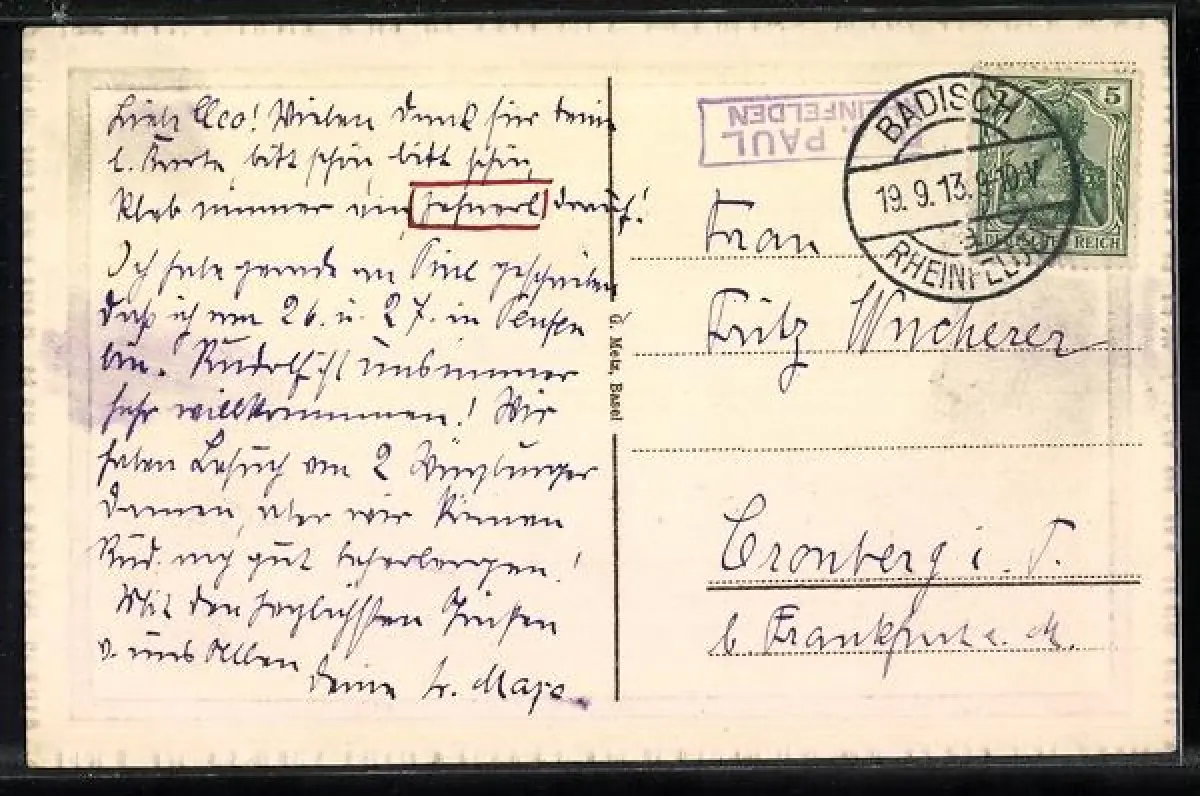 Liebe Cleo! Vielen Dank für deine
l. Karte, bitt schön, bitt schön,
kleb nimmer ein Zehnerl drauf!
Ich habe gerade an geschrieben
daß ich am 26. u. 27. in
bin. Rudolf ist uns immer
sehr willkommen! Wir
haben Besuch von 2 Würzburger
Damen, aber wir können
Rud. gut beherbergen!
Mit den herzlichsten Grüßen
v. uns Allen
deine tr.
G. Metz, Basel
PAUL
RHEINFELDEN
BADISCH
19. 9. 13. 9-10 V
RHEINFELDEN
5
DEUTSCHES REICH
Frau
Fritz Wucherer
Cronberg i. T.
b. Frankfurt a. M.